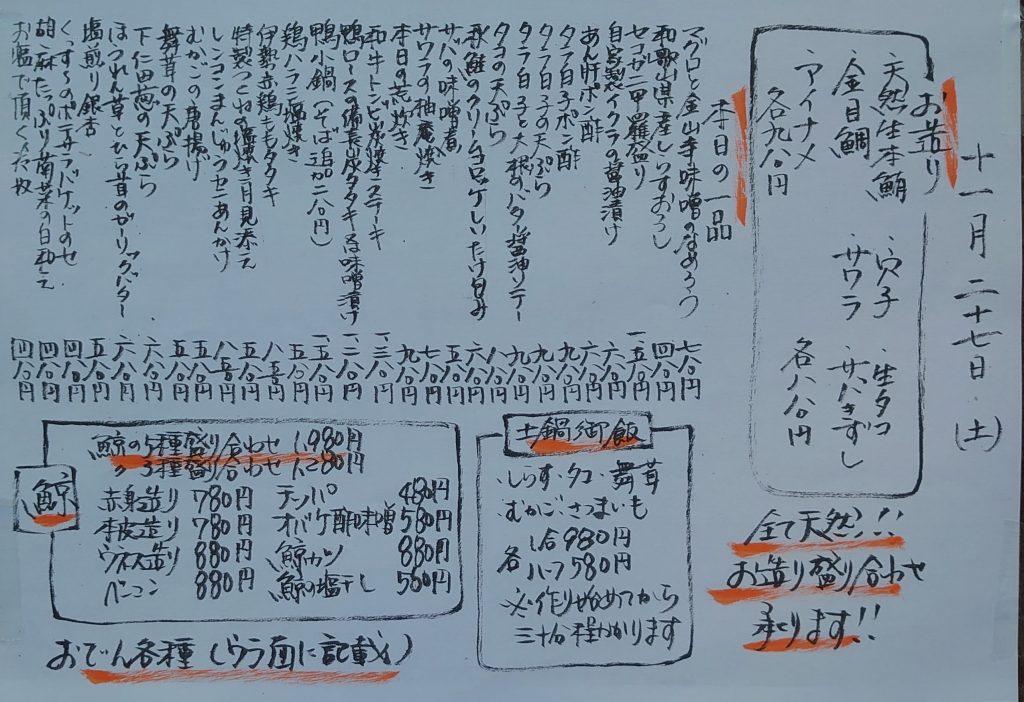 十一月二十七日(土)
お造り
天然生本鮪
金目鯛
アイナメ
各九八〇円
・穴子
・サワラ
・生タコ
・サバきずし
各八八〇円
全て天然!!
お造り盛り合わせ
承ります!!
本日の一品
マグロと金山寺味噌のなめろう 七八〇円
和歌山県産しらすおろし 四八〇円
セコガニ甲羅盛り 一、五八〇円
自家製イクラの醤油漬け 六八〇円
あん肝ポン酢 六八〇円
タラ白子ポン酢 九八〇円
タラ白子の天ぷら 九八〇円
タラ白子と大根のバター醤油ソテー 九八〇円
タコの天ぷら 八八〇円
秋鮭のクリームコロッケしいたけ包み
サバの味噌煮 五八〇円
サワラの柚庵焼き
本日の荒炊き
和牛トンビ炭焼ステーキ
鴨ロースの備長炭タタキ
鴨小鍋(そば追加二八〇円) 一、五八〇円
鶏ハラミ塩焼き 五八〇円
伊勢赤鶏ももタタキ
特製つくねの塩焼き月見添え
レンコンまんじゅうカニあんかけ
むかごの唐揚げ
舞茸の天ぷら
下仁田葱の天ぷら 六八〇円
ほうれん草とひら茸のガーリックバター 六八〇円
塩煎り銀杏
くっすぅのポテサラバケットのせ
胡麻たっぷり菊菜の白和え 四八〇円
お塩で頂く〆だ枚 四八〇円
土鍋御飯
・しらす・タコ・舞茸
・むかご・さつまいも
各
1合980円
ハーフ580円
※作り始めてから
三十分程かかります
鯨
鯨の5種盛り合わせ 1,980円
〃 3種盛り合わせ 1,280円
赤身造り 780円
本皮造り 780円
ウネス造り 880円
ベーコン 880円
テッパ 480円
オバケ酢味噌 580円
鯨カツ 880円
鯨の塩干し 580円
おでん各種(ウラ面に記載)